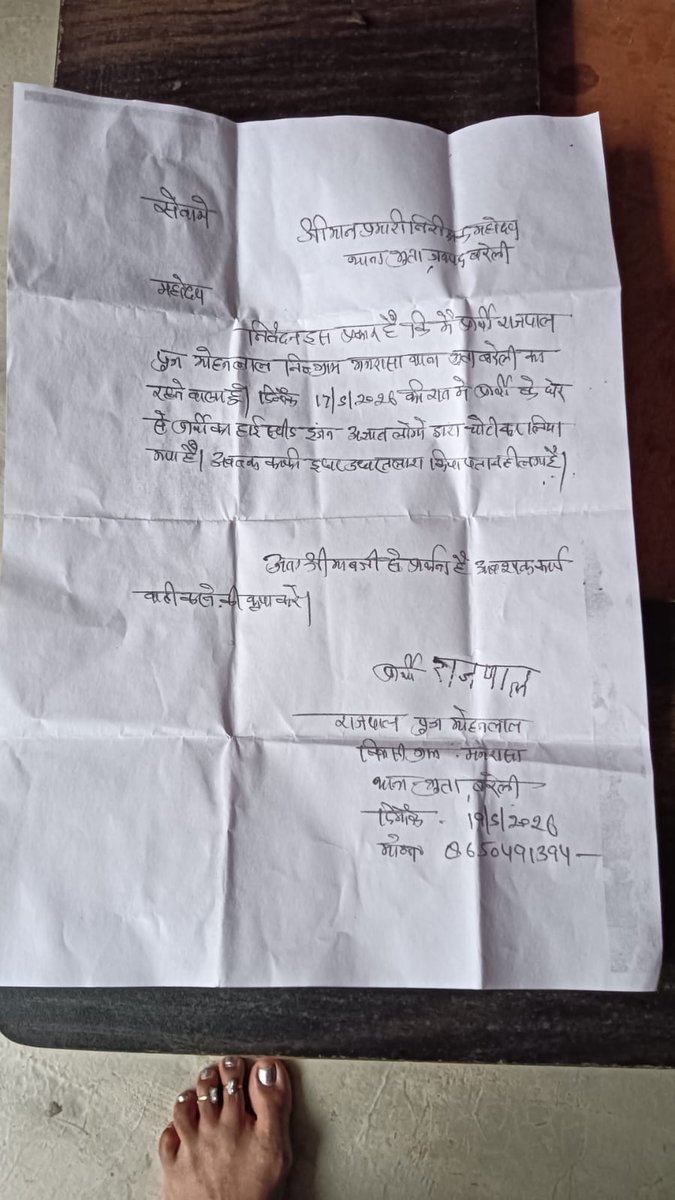 सेवामे
श्रीमान प्रभारी निरीक्षक महोदय
थाना भुता जनपद बरेली
महोदय
निवेदन इस प्रकार है कि मै प्रार्थी राजपाल
पुत्र मोहनलाल नि० ग्राम थाना भुता बरेली का
रहने वाला हूँ। दिनाँक 17/5/2026 की रात मे प्रार्थी के घेर
से प्रार्थी का हाई स्पीड इंजन अज्ञात लोगो द्वारा चोरी कर लिया
गया है। अब तक काफी इधर उधर तलाश किया पता नही लगा है।
अतः श्रीमान जी से प्रार्थना है आवश्यक कार्य
वाही करने की कृपा करे।
प्रार्थी राजपाल
राजपाल पुत्र मोहनलाल
निवासी ग्राम
थाना भुता बरेली
दिनाँक - 19/5/2026
मोबा० 8650491394